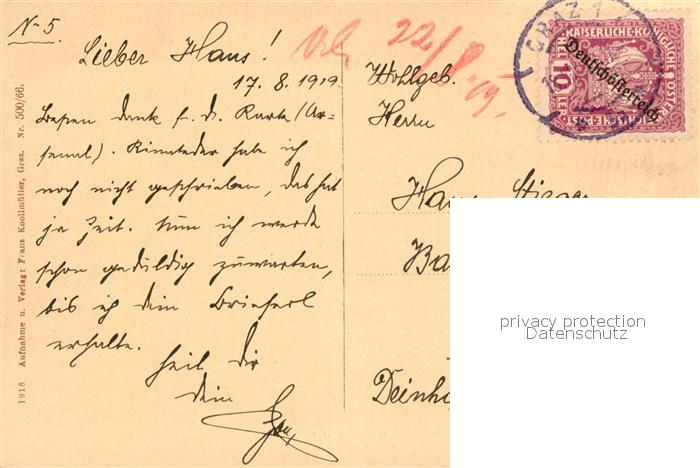 No 5.
Lieber Hans!
17. 8. 1919.
Besten dank f. d. Karte (Ar-
senal). habe ich
noch nicht geschrieben, das hat
ja Zeit. Nun ich werde
schon geduldig zuwarten,
bis ich dein Brieferl
erhalte.
Heil dir
dein
22/8. 19.
Wohlgeb.
Herrn
Hans
Ba
GRAZ 1
KAISERLICHE KÖNIGLICHE
Deutschösterreich
10
1918 Aufnahme u. Verlag: Franz Knollmüller, Graz. Nr. 500/66.
privacy protection
Datenschutz